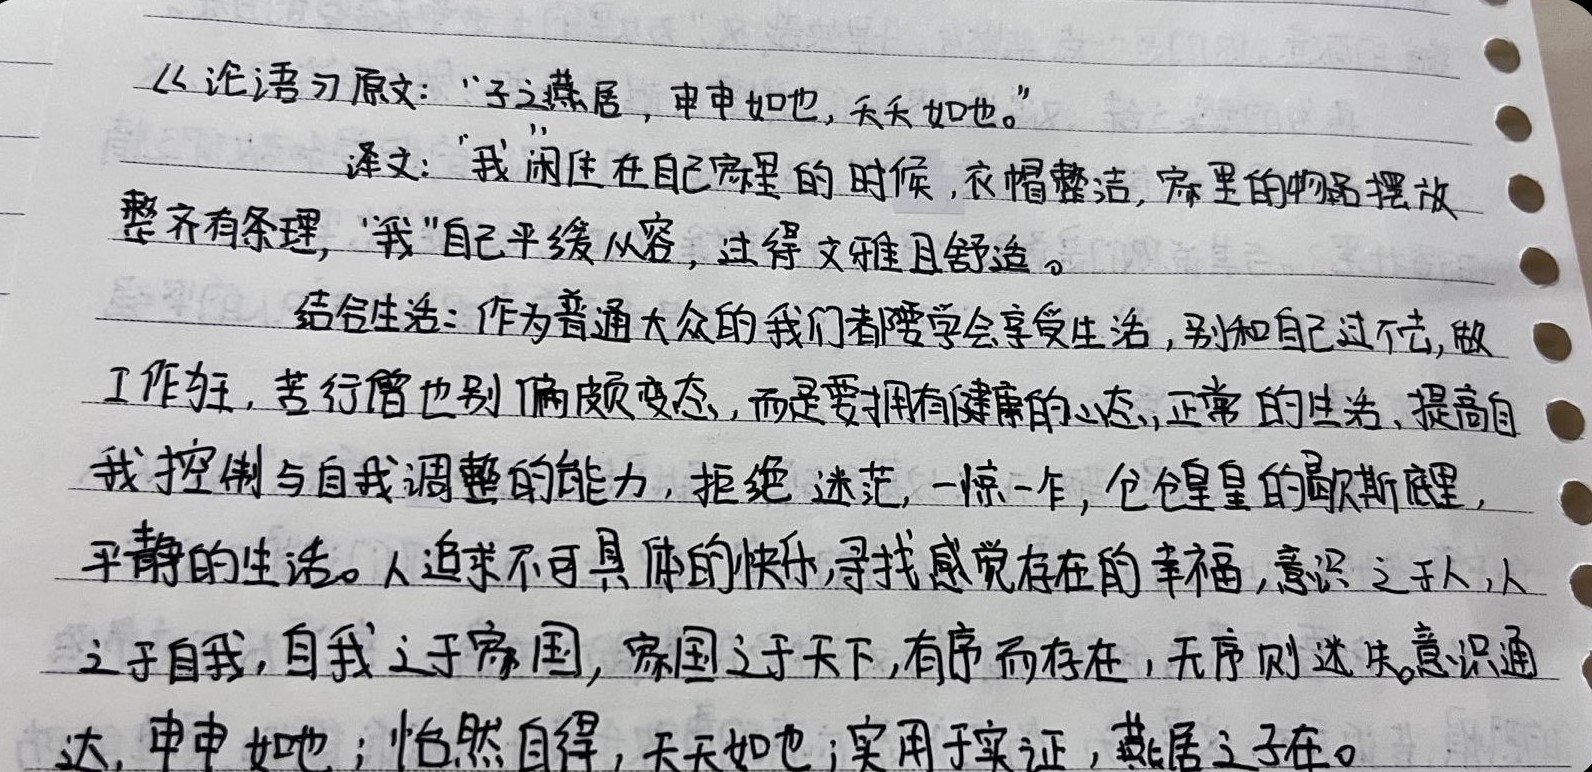 《论语》原文：“子之燕居，申申如也，夭夭如也。”
译文：“我”闲住在自己家里的时候，衣帽整洁，家里的物品摆放
整齐有条理，“我”自己平缓从容，过得文雅且舒适。
结合生活：作为普通大众的我们都要学会享受生活，别和自己过不去，做
工作狂，苦行僧也别偏颇变态，而是要拥有健康的心态，正常的生活、提高自
我控制与自我调整的能力，拒绝迷茫，一惊一乍，仓仓皇皇的歇斯底里，
平静的生活。人追求不可具体的快乐，寻找感觉存在的幸福，意识之于人，人
之于自我，自我之于家国，家国之于天下，有序而存在，无序则迷失。意识通
达，申申如也；怡然自得，夭夭如也；实用于实证，燕居之子在。